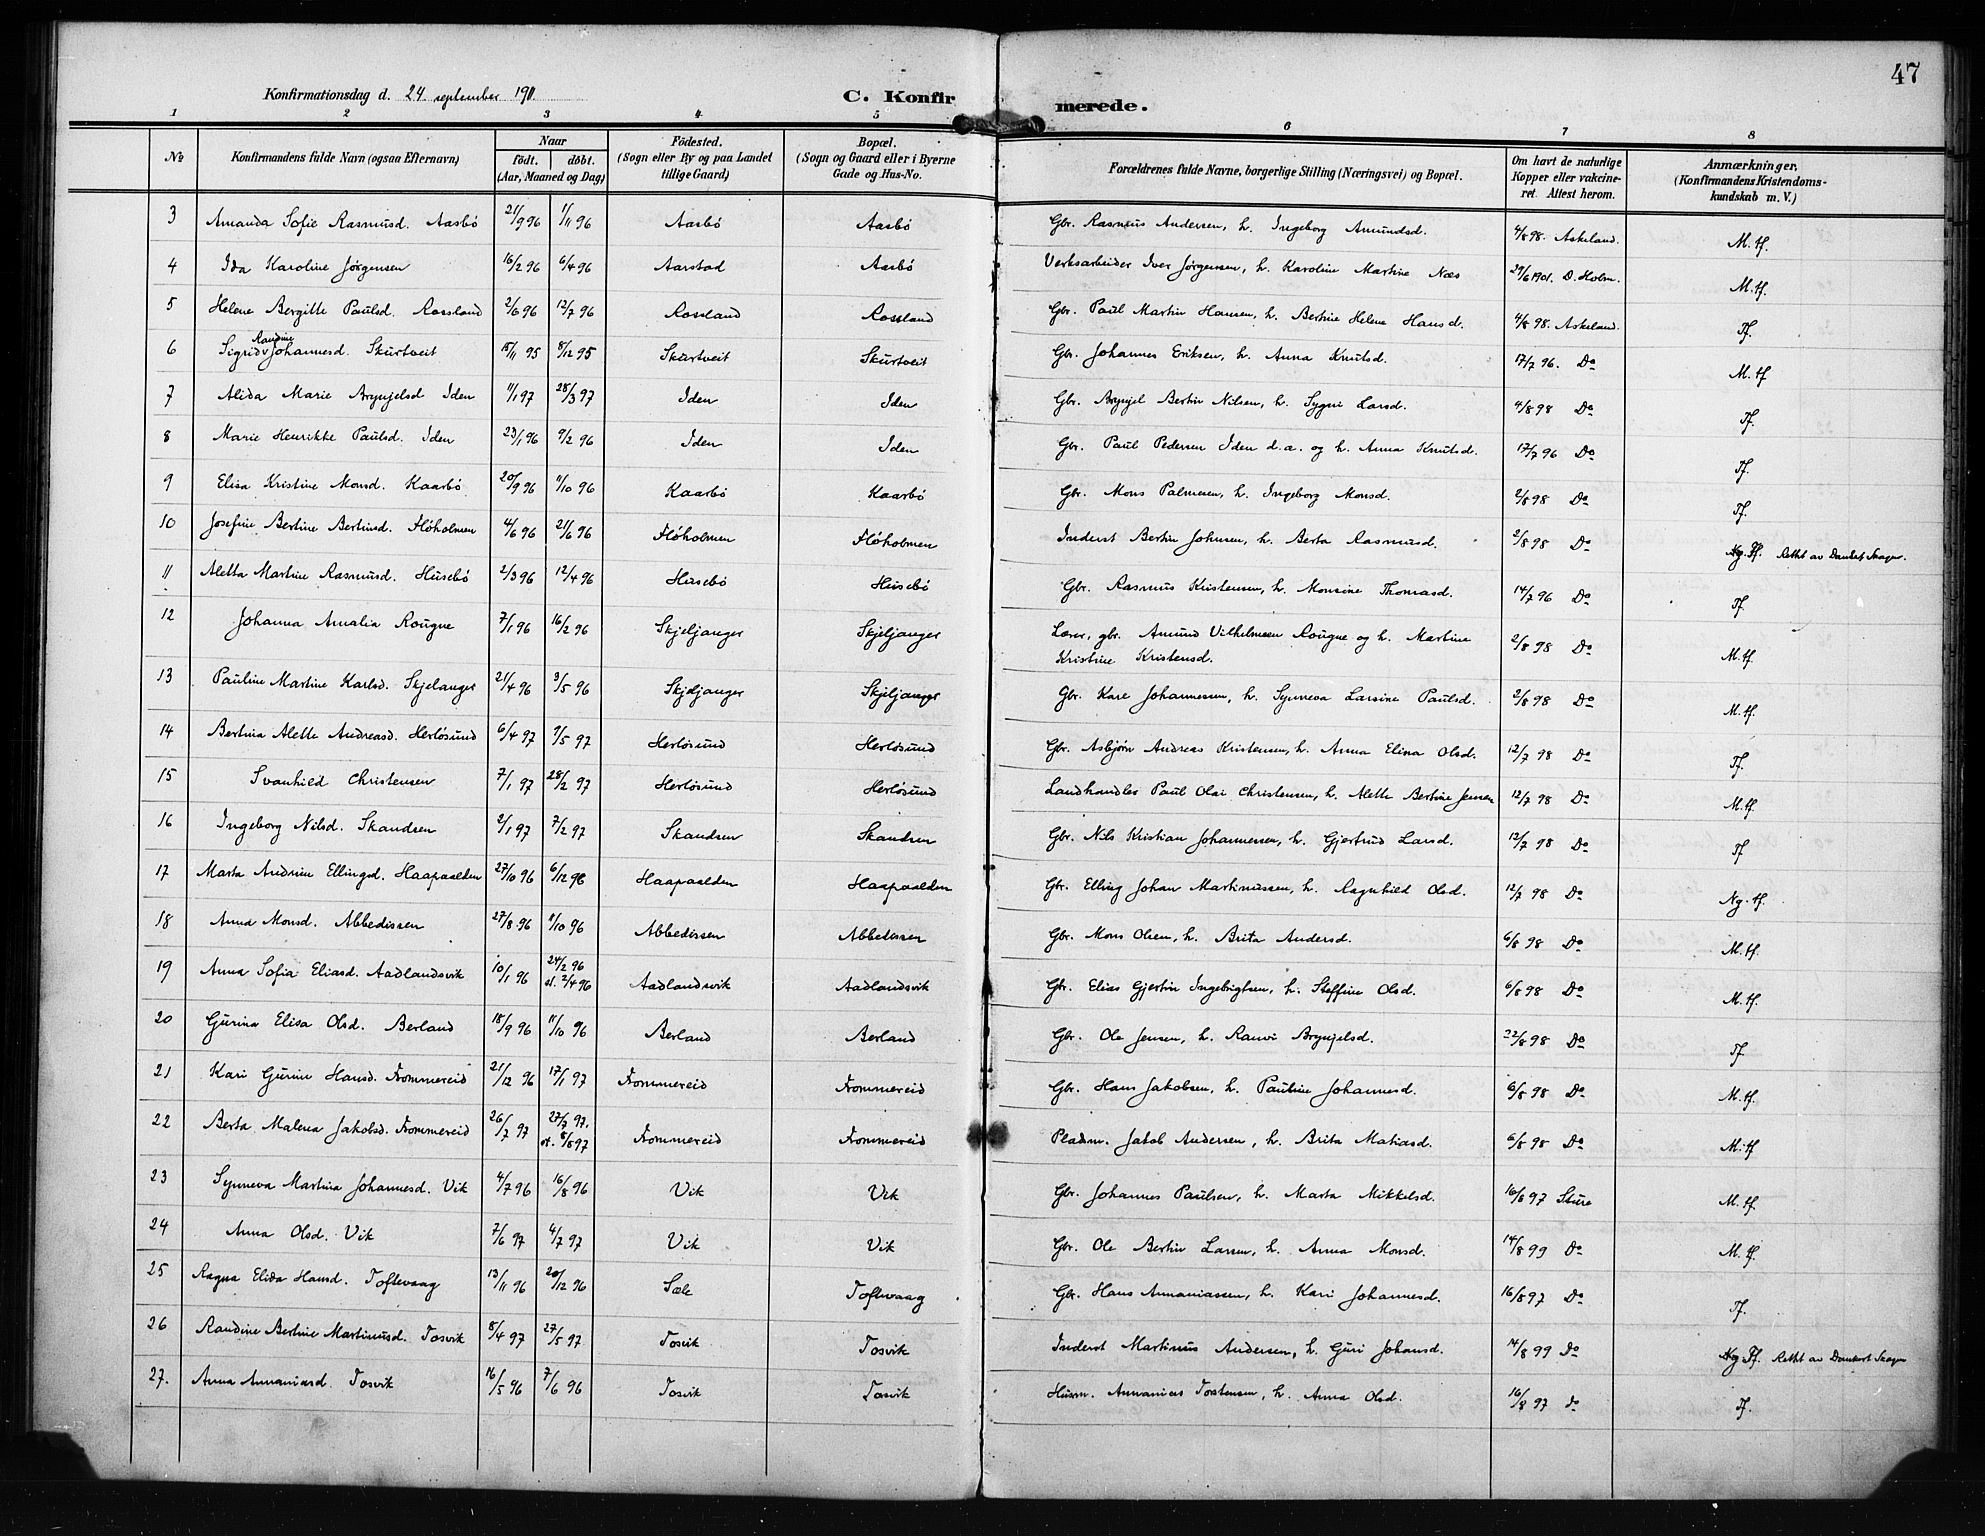 47
Konfirmationsdag d. 24 september 1911.
C. Konfirmerede.
1 2 3 4 5 6 7 8
№ | Konfirmandens fulde Navn (ogsaa Efternavn) | Naar födt. døbt. (Aar, Maaned og Dag) | Födested. (Sogn eller By og paa Landet tillige Gaard) | Bopæl. (Sogn og Gaard eller i Byerne Gade og Hus-No. | Forældrenes fulde Navne, borgerlige Stilling (Næringsvei) og Bopæl. | Om havt de naturlige Kopper eller vakcineret. Attest herom. | Anmærkninger, (Konfirmandens Kristendomskundskab m. V.)
3 Amanda Sofie Rasmusd. Aasbø 21/9 96 1/11 96 Aasbø Aasbø Gbr. Rasmus Andersen, h. Ingeborg Amundsd. 4/8 98. Askeland. M. tf.
4 Ida Karoline Jørgensen 16/2 96 6/4 96 Aarstad Aasbø Verksarbeider Iver Jørgensen, h. Karoline Martine Næs 29/6 1901. D. Holm. M. tf.
5 Helene Bergitte Paulsd. Rossland 2/6 96 12/7 96 Rossland Rossland Gbr. Paul Martin Hansen, h. Bertine Helene Hansd. 4/8 98. Askeland. Tf.
6 Sigrid Randine Johannesd. Skurtveit 15/11 95 8/12 95 Skurtveit Skurtveit Gbr. Johannes Eriksen, h. Anna Knutsd. 17/7 96. Do M. tf
7 Alida Marie Brynjelsd Iden 1/1 97 28/3 97 Iden Iden Gbr. Brynjel Bertin Nilsen, h. Sygni Larsd. 4/8 98 Do Tf.
8 Marie Henrikke Paulsd. Iden 23/1 96 9/2 96 Iden Iden Gbr. Paul Pedersen Iden d.æ. og h. Anna Knutsd. 17/7 96 Do Tf.
9 Elisa Kristine Monsd. Kaarbø 20/9 96 11/10 96 Kaarbø Kaarbø Gbr. Mons Palmesen, h. Ingeborg Monsd. 2/8 98 Do Tf.
10 Josefine Bertine Bertinsd. Fløholmen 4/6 96 21/6 96 Fløholmen Fløholmen Inderst Bertin Johnsen, h. Berta Rasmusd. 2/8 98 Do Tf. Rettet av Dankert Skagen.
11 Aletta Martine Rasmusd. Husebø 2/3 96 12/4 96 Husebø Husebø Gbr. Rasmus Kristensen, h. Monsine Thomasd. 14/7 96 Do Tf.
12 Johanna Amalia Rougne 7/1 96 16/2 96 Skjeljanger Skjeljanger Lærer, gbr. Amund Vilhelmsen Rougne og h. Martine
Kristine Kristensd. 2/8 98 Do M. tf.
13 Pauline Martine Karlsd. Skjelanger 21/4 96 3/5 96 Skjeljanger Skjeljanger Gbr. Kare Johannessen, h. Synneva Larsine Paulsd. 2/8 98 Do M. tf.
14 Bertina Alette Andreasd. Herløsund 6/4 97 9/5 97 Herløsund Herløsund Gbr. Asbjørn Andreas Kristensen, h. Anna Elina Olsd. 12/7 98 Do Tf.
15 Svanhild Christensen 7/1 97 28/2 97 Herløsund Herløsund Landhandler Paul Olai Christensen, h. Alette Bertine Jensen 12/7 98 Do M. tf.
16 Ingeborg Nilsd. Skandsen 2/1 97 7/2 97 Skandsen Skandsen Gbr. Nils Kristian Johannessen, h. Gjertrud Larsd. 12/7 98 Do Tf
17 Marta Andrine Ellingsd. Haapaalden 27/10 96 6/12 96 Haapaalden Haapaalden Gbr. Elling Johan Martinussen, h. Ragnhild Olsd. 12/7 98 Do Ng. tf.
18 Anna Monsd. Abbedissen 27/8 96 11/10 96 Abbedissen Abbedissen Gbr. Mons Olsen, h. Brita Andersd. 6/8 98 Do M. tf.
19 Anna Sofia Eliasd. Aadlandsvik 10/1 96 24/2 96 st. 2/4 96 Aadlandsvik Aadlandsvik Gbr. Elias Gjertin Ingebrigtsen, h. Steffine Olsd. 6/8 98 Do M. tf.
20 Gurina Elisa Olsd. Berland 18/9 96 11/10 96 Berland Berland Gbr. Ole Jensen, h. Ranvi Brynjelsd. 22/8 98 Do Tf
21 Kari Gurine Hansd. Frommereid 21/12 96 17/1 97 Frommereid Frommereid Gbr. Hans Jakobsen, h. Pauline Johannesd. 6/8 98 Do M. tf.
22 Berta Malena Jakobsd. Frommereid 26/7 97 27/7 97. st. 8/8 97 Frommereid Frommereid Pladsm. Jakob Andersen, h. Brita Matiasd. 6/8 98 Do M. tf
23 Synneva Martina Johannesd. Vik 4/7 96 16/8 96 Vik Vik Gbr. Johannes Paulsen, h. Marta Mikkelsd. 16/8 97 Sture M. tf.
24 Anna Olsd. Vik 7/6 97 4/7 97 Vik Vik Gbr. Ole Bertin Larsen, h. Anna Monsd. 14/8 99 Do M. tf.
25 Ragna Elida Hansd. Toftevaag 13/11 96 20/12 96 Sæle Toftevaag Gbr. Hans Annaniassen, h. Kari Johannesd. 16/8 97 Do Tf.
26 Randine Bertine Martinusd. Tosvik 8/4 97 27/5 97 Tosvik Tosvik Inderst Martinus Andersen, h. Guri Johansd. 14/8 99 Do Tf. Rettet av Dankert Skagen
27. Anna Annaniasd. Tosvik 16/5 96 7/6 96 Tosvik Tosvik Husm. Annanias Torstensen, h. Anna Olsd. 16/8 97 do Tf.